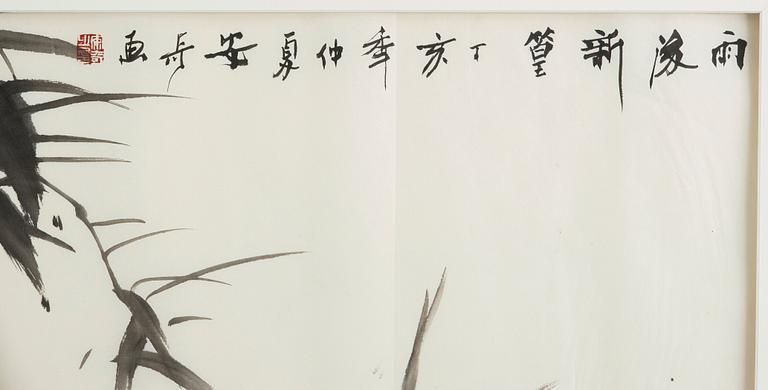 雨後新篁丁亥年仲夏安於画